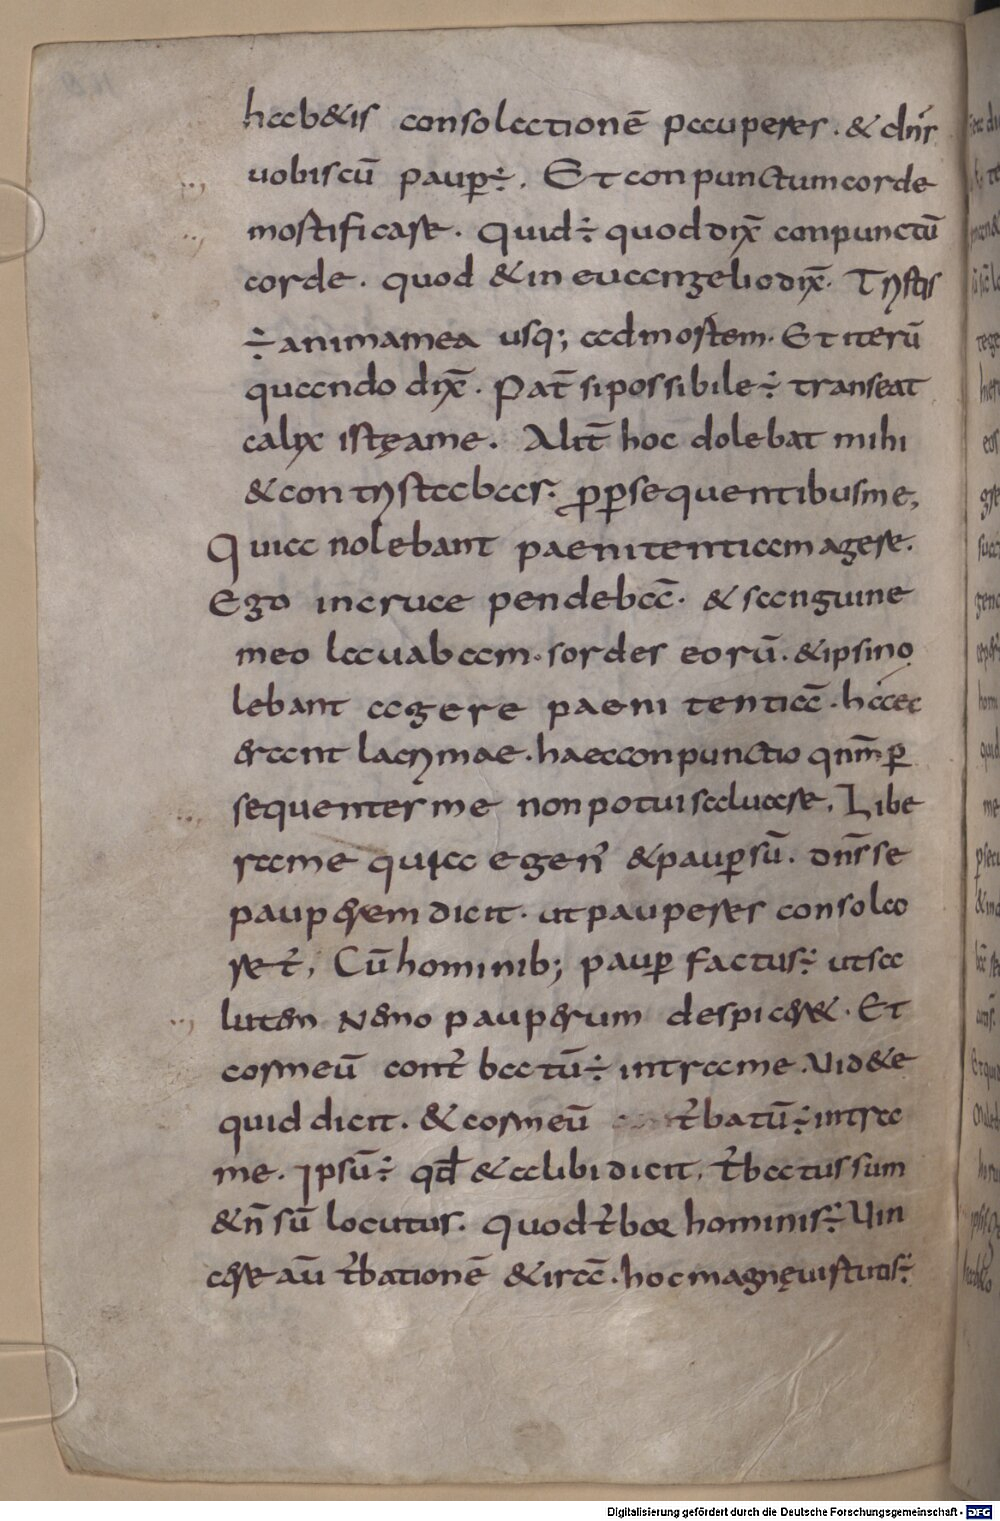 hab&is consolationē pauperes. & dn̄s
uobiscū paup̱ ÷. Et conpunctum corde
mortificare. quid ÷ quod dix̄ conpunctū
corde. quod & in euangelio dix̄. Tristis
÷ anima mea usq; ad mortem. Et iterū
quando dix̄. Pat̄ si possibile ÷ transeat
calix iste a me. Alit̄ hoc dolebat mihi
& contristabar. ꝓ ꝑsequentibus me,
Quia nolebant paenitentiam agere.
Ego in cruce pendebā. & sanguine
meo lauabam. sordes eorū. & ipsi no
lebant agere paenitentiā. haec
erant lacrimae. haec conpunctio qnm̄ ꝑ
sequenter me non potui saluare. Libe
ra me quia egen' & pauꝑ sū. dn̄s se
pauperem dicit. ut pauperes consola
ret', Cū hominib; pauꝑ factus ÷ ut sa
lutem nemo pauperum despiceret. Et
cor meū cont'batū ÷ intra me. Uid&e
quid dicit. & cor meū t'batū ÷ intra
me. Ipsū ÷ qđ & alibi dicit, t'batus sum
& n̄ sū locutus. quod t'bor hominis ÷ Uin
cere aū t'bationē & irā. hoc magnę uirtutis ÷
Digitalisierung gefördert durch die Deutsche Forschungsgemeinschaft - DFG